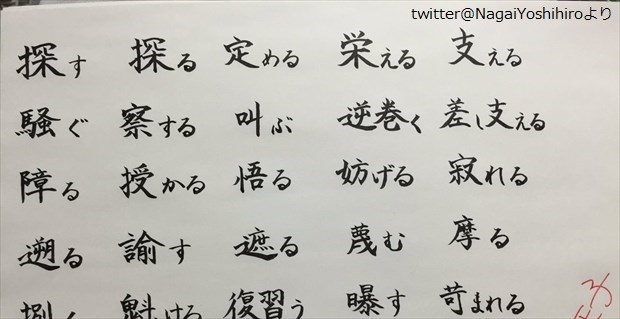 twitter@NagaiYoshihiroより
探す 探る 定める 栄える 支える
騒ぐ 察する 叫ぶ 逆巻く 差し支える
障る 授かる 悟る 妨げる 寂れる
遡る 諭す 遮る 蔑む 摩る
捌く 魁ける 復習う 曝す 苛まれる